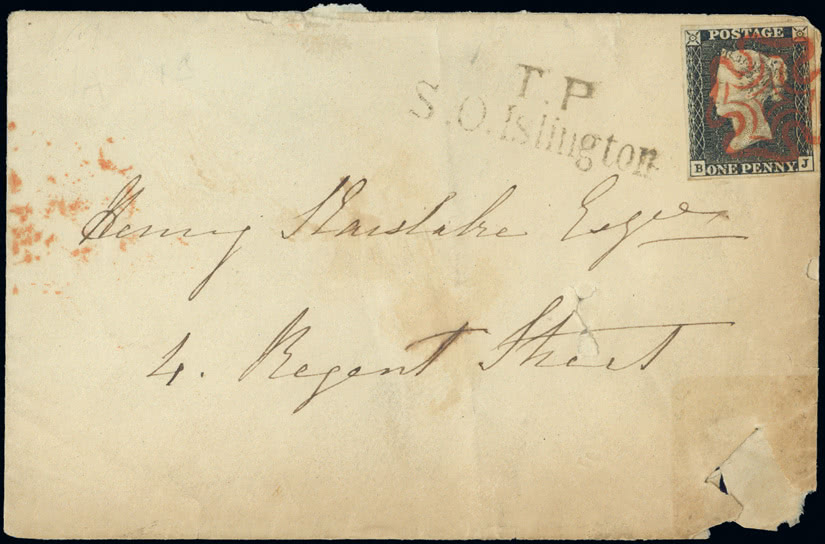 POSTAGE
T.P
S.O.Islington
B ONE PENNY J
Henry Karslake Esqre
4. Regent Street